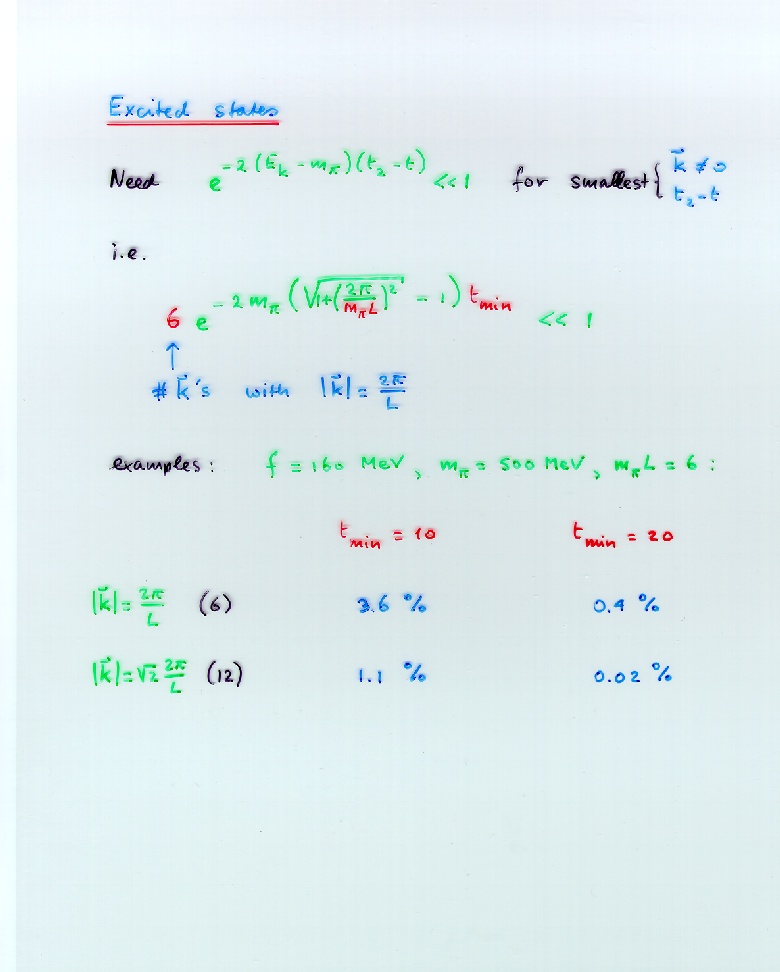 Excited states
Need e^{-2(E_k - m_π)(t_2 - t)} << 1 for smallest { k⃗ ≠ 0
t_2 - t
i.e.
6 e^{-2 m_π (√(1+(2π/(m_π L))^2) - 1) t_min} << 1
↑
# k⃗'s with |k⃗| = 2π/L
examples: f = 160 MeV, m_π = 500 MeV, m_π L = 6 :
t_min = 10 t_min = 20
|k⃗| = 2π/L (6) 3.6 % 0.4 %
|k⃗| = √2 2π/L (12) 1.1 % 0.02 %